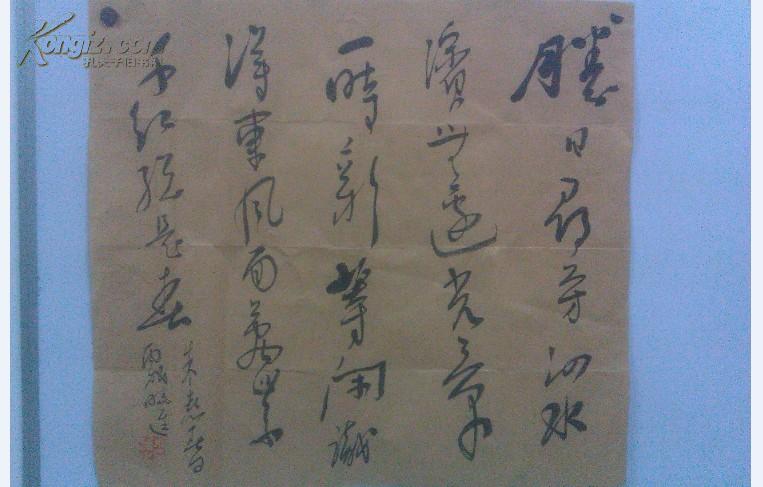 勝日尋芳泗水
濱無邊光景
一時新等閑識
得東風面萬紫
千紅總是春
朱熹
Kongfz.com
孔夫子旧书网